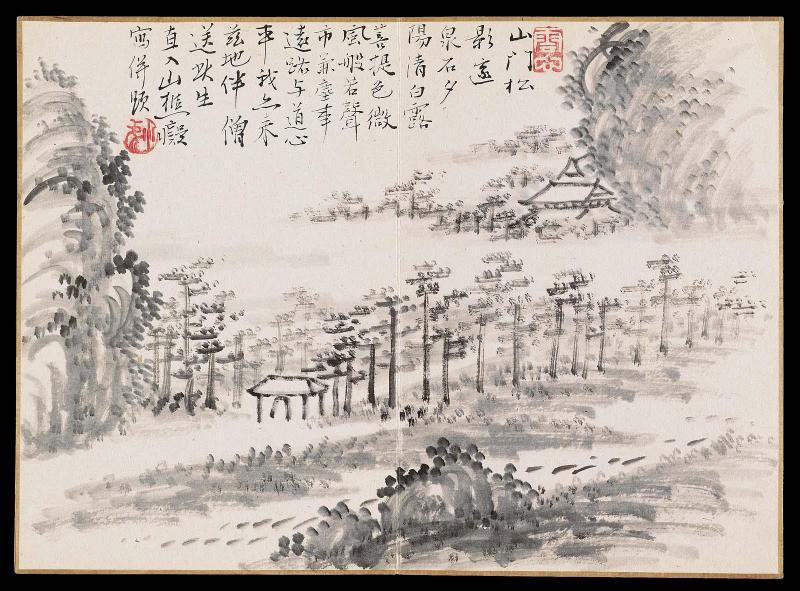 山門松
影遠
泉石夕
陽清白露
菩提色微
風般若聲
市兼塵事
遠路与道心
平我亦来
茲地伴僧
送此生
直入山樵癡
寫併題